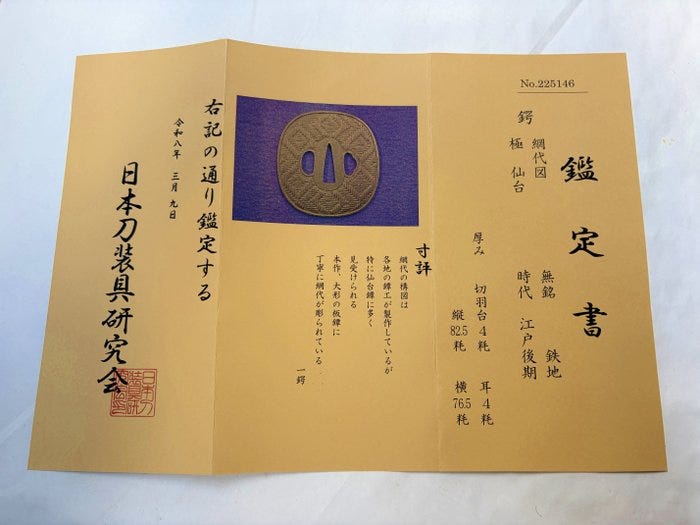 No.225146
鑑定書
鍔 網代図
極 仙台
無銘 鉄地
時代 江戸後期
厚み 切羽台4粍 耳4粍
縦82.5粍 横76.5粍
寸評
網代の構図は
各地の鐔工が製作しているが
特に仙台鐔に多く
見受けられる
本作、大形の板鐔に
丁寧に網代が彫られている。
一鍔
右記の通り鑑定する
令和八年 三月 九日
日本刀装具研究会